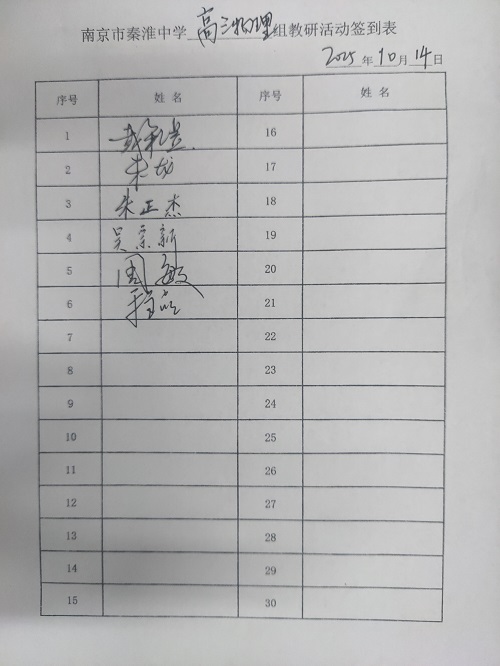 南京市秦淮中学 高三物理 组教研活动签到表
2025 年 10 月 14 日
序号 姓 名 序号 姓 名
1 16
2 朱 17
3 朱正杰 18
4 吴宗新 19
5 周敏 20
6 21
7 22
8 23
9 24
10 25
11 26
12 27
13 28
14 29
15 30